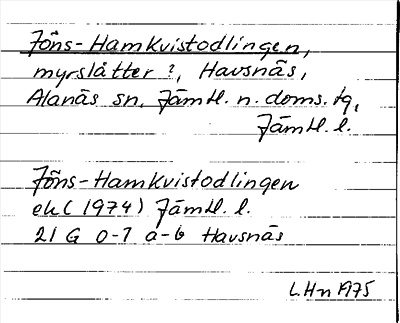 Jöns-Hamkvistodlingen,
myrslåtter?, Havsnäs,
Alanäs sn. Jämtl. n. doms. tg,
Jämtl. l.
Jöns-Hamkvistodlingen
ek (1974) Jämtl. l.
21 G 0-1 a-b Havsnäs
L.Hn 1975